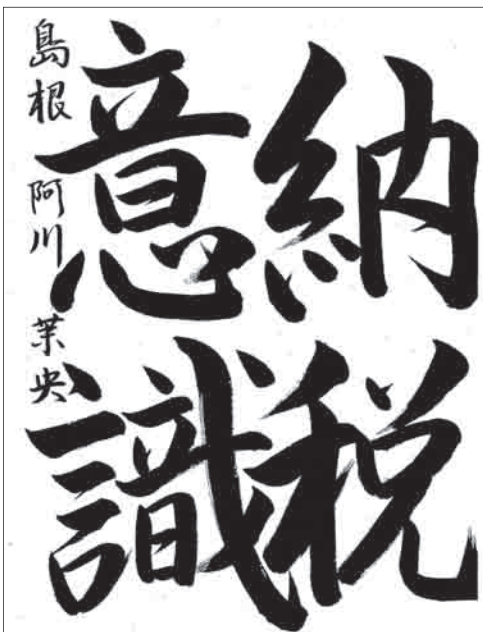 納税
意識
島根 阿川 茉央